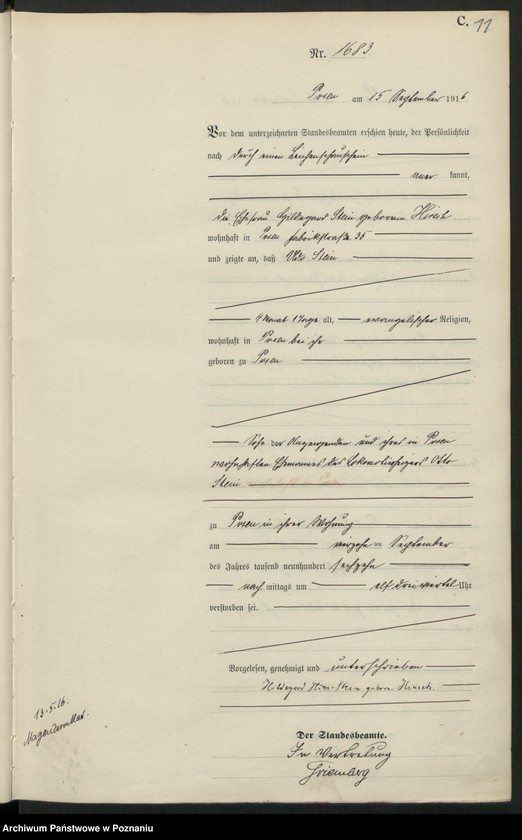 C. 11
Nr. 1683
Posen am 15 September 1916
Vor dem unterzeichneten Standesbeamten erschien heute, der Persönlichkeit
nach durch einen Leichenschauschein
aner kannt,
die Ehefrau Hildegard Stein geborene Hirsch
wohnhaft in Posen Fabrikstraße 35
und zeigte an, daß Otto Stein
4 Monat 1 Tage alt, evangelischer Religion,
wohnhaft in Posen bei ihr
geboren zu Posen
Sohn der Anzeigenden und ihres in Posen
wohnhaften Ehemannes des Lokomotivheizers Otto
Stein
zu Posen in ihrer Wohnung
am vierzehn ten September
des Jahres tausend neunhundert sechzehn
nach mittags um elf dreiviertel Uhr
verstorben sei.
Vorgelesen, genehmigt und unterschrieben
Hildegard Stein geboren
13.5.16.
Der Standesbeamte.
In Vertretung
Archiwum Państwowe w Poznaniu